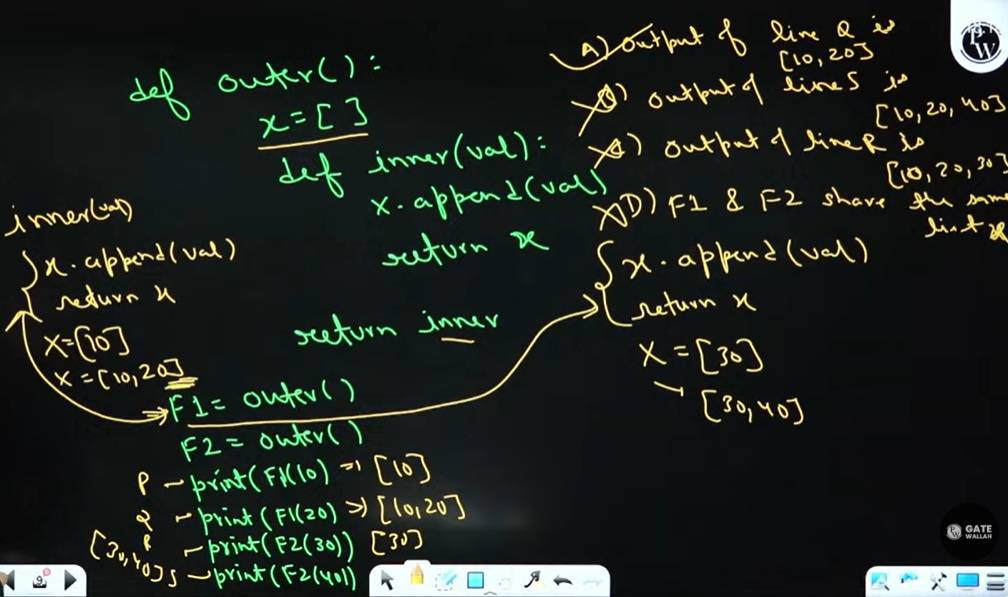 def outer():
x=[ ]
def inner(val):
x.append(val)
return x
return inner
F1= outer()
F2= outer()
P - print(F1(10) => [10]
Q - print(F1(20) => [10,20]
R - print(F2(30)) [30]
[30,40] S - print(F2(40))
inner(val)
x.append(val)
return x
X=[10]
X=[10,20]
A) output of line Q is
[10,20]
) output of line S is
[10,20,40]
) output of line R is
[10,20,30]
D) F1 & F2 share the same
list x
x.append(val)
return x
X=[30]
→ [30,40]
W
GATE
WALLAH